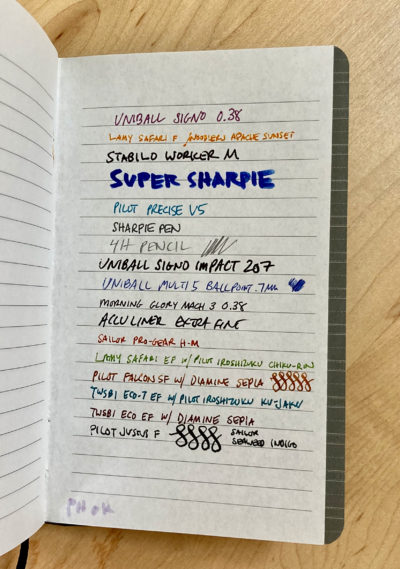 UNIBALL SIGNO 0.38
LAMY SAFARI F / NOODLERS APACHE SUNSET
STABILO WORKER M
SUPER SHARPIE
PILOT PRECISE V5
SHARPIE PEN
4H PENCIL
UNIBALL SIGNO IMPACT 207
UNIBALL MULTI 5 BALLPOINT .7MM
MORNING GLORY MACH 3 0.38
ACCULINER EXTRA FINE
SAILOR PRO-GEAR H-M
LAMY SAFARI EF W/ PILOT IROSHIZUKU CHIKU-RIN
PILOT FALCON SF W/ DIAMINE SEPIA
TWSBI ECO-T EF W/ PILOT IROSHIZUKU KU-JAKU
TWSBI ECO EF W/ DIAMINE SEPIA
PILOT JUSTUS F SAILOR
SEAWEED INDIGO
PH OK